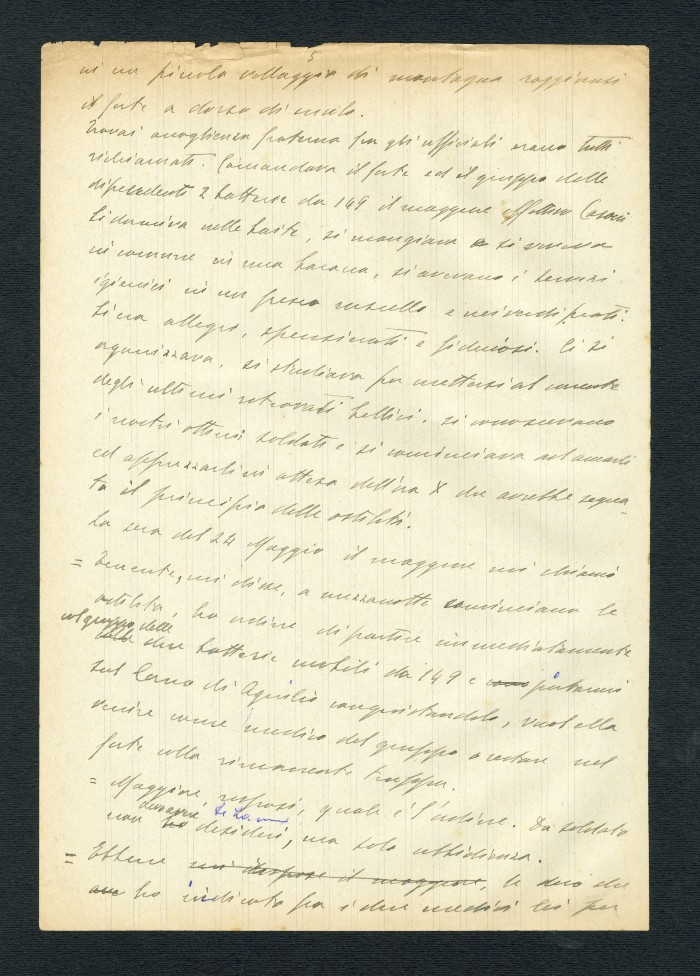 5
in un piccolo villaggio di montagna raggiunsi
il forte a dorso di mulo.
Trovai accoglienza fraterna fra gli ufficiali erano tutti
richiamati. Comandava il forte ed il gruppo delle
dipendenti 2 batterie da 149 il maggiore effettivo
Si dormiva nelle, si mangiava e si viveva
in comune in una baracca, si avevano i servizi
igienici in un fresco ruscello e nei verdi prati.
Si era allegri, spensierati e fiduciosi. Ci si
organizzava, si studiava per mettersi al corrente
degli ultimi ritrovati bellici, si conoscevano
i nostri ottimi soldati e si cominciava ad amarli
ed apprezzarli in attesa dell'ora X che avrebbe segna-
to il principio delle ostilità.
La sera del 24 Maggio il maggiore mi chiamò
= Tenente, mi disse, a mezzanotte cominciano le
ostilità, ho ordine di partire immediatamente
col gruppo delle
due batterie mobili da 149 e portarmi
sul Corno di Aquilio conquistandolo, vuol ella
venire come medico del gruppo o restare nel
forte colla rimanente truppa.
= Maggiore, risposi, quale è l'ordine. Da soldato
non ho desideri, ma solo ubbidienza.
= Ebbene mi rispose il maggiore, le dirò che
ho indicato fra i due medici lei per